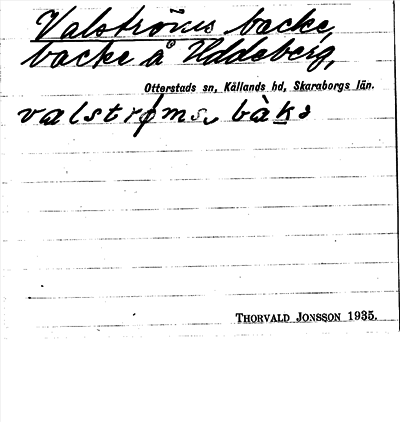 Valströms backe,
backe å Uddeberg,
Otterstads sn, Kållands hd, Skaraborgs län.
valstrøms, bàkə
THORVALD JONSSON 1935.